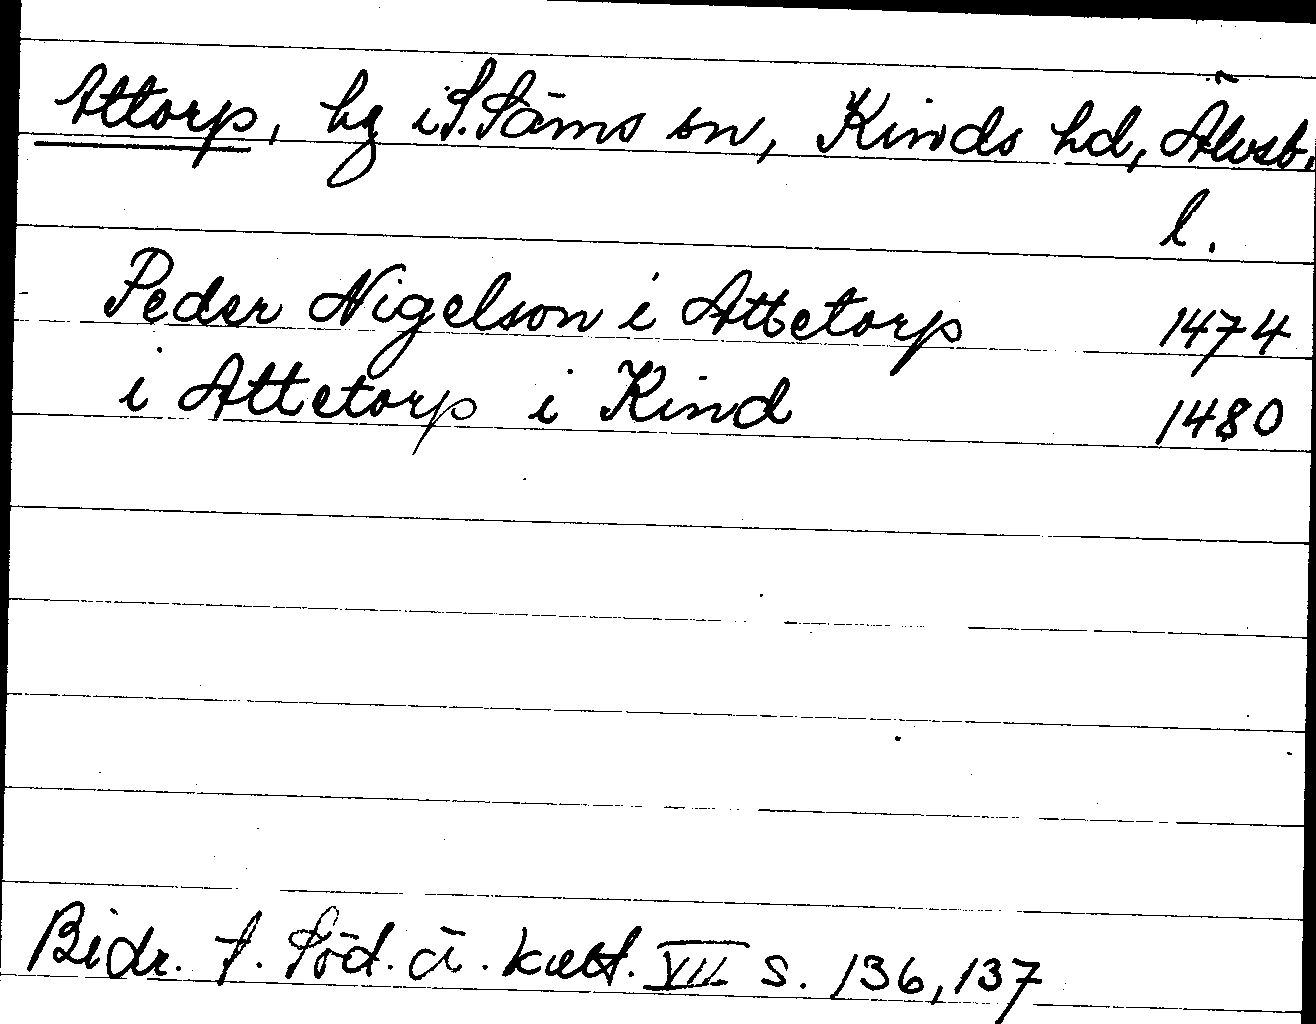 Attorp, hg i S. Säms sn, Kinds hd, Älvsb.
l.
Peder Nigelson i Attetorp 1474
i Attetorp i Kind 1480
Bidr. t. Söd. ä. kult. VII s. 136, 137